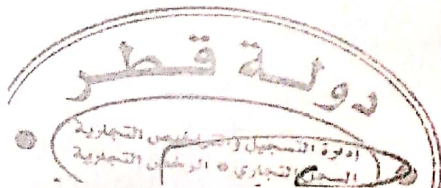 دولة قطر
إدارة التسجيل والتراخيص التجارية
السجل التجاري * الرخص التجارية